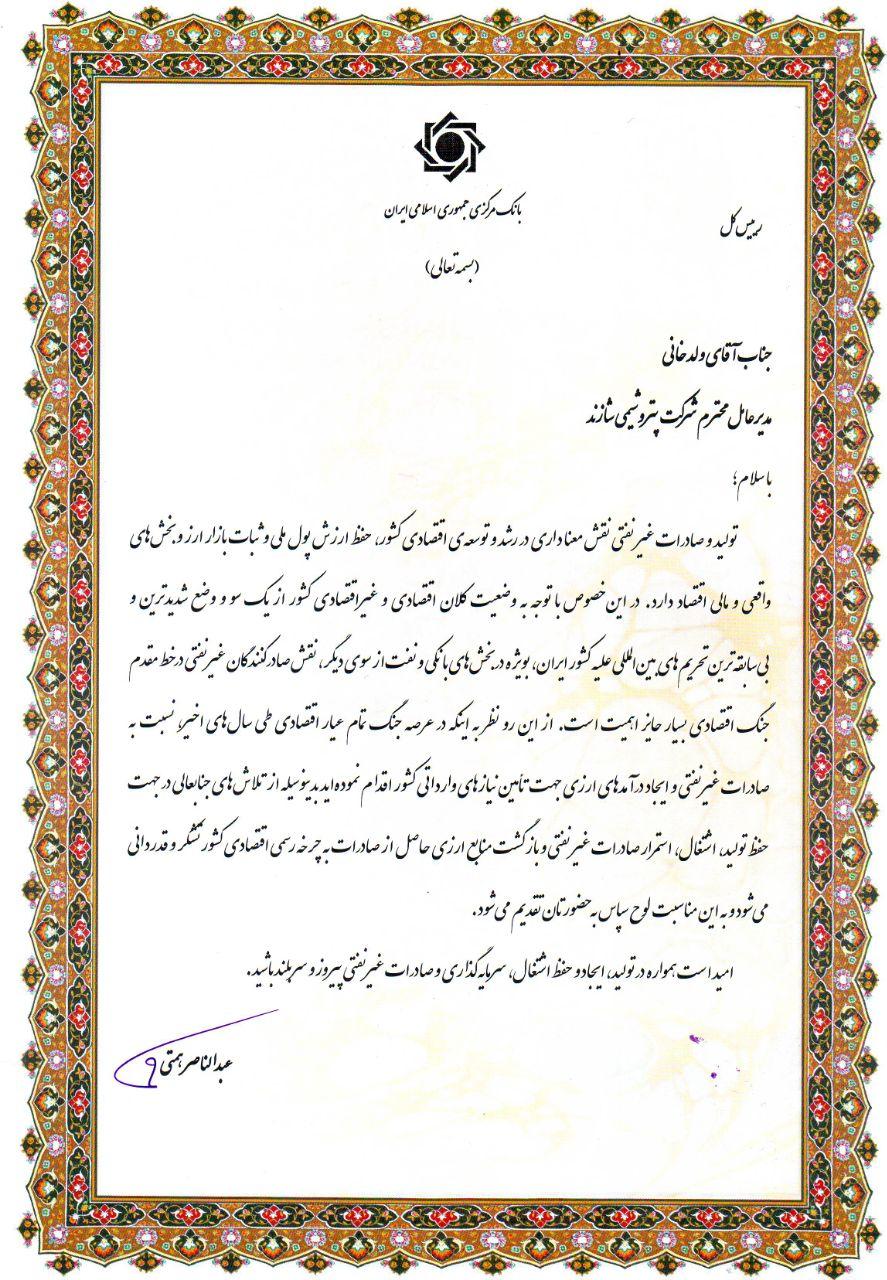 بانک مرکزی جمهوری اسلامی ایران
رییس کل
(بسمه تعالی)
جناب آقای ولدخانی
مدیرعامل محترم شرکت پتروشیمی شازند
با سلام؛
تولید و صادرات غیرنفتی نقش معناداری در رشد و توسعه‌ی اقتصادی کشور، حفظ ارزش پول ملی و ثبات بازار ارز و بخش‌های
واقعی و مالی اقتصاد دارد. در این خصوص با توجه به وضعیت کلان اقتصادی و غیراقتصادی کشور از یک سو و وضع شدیدترین و
بی‌سابقه‌ترین تحریم‌های بین‌المللی علیه کشور ایران، بویژه در بخش‌های بانکی و نفت از سوی دیگر، نقش صادرکنندگان غیرنفتی در خط مقدم
جنگ اقتصادی بسیار حایز اهمیت است. از این رو نظر به اینکه در عرصه جنگ تمام عیار اقتصادی طی سال‌های اخیر، نسبت به
صادرات غیرنفتی و ایجاد درآمدهای ارزی جهت تأمین نیازهای وارداتی کشور اقدام نموده‌اید بدینوسیله از تلاش‌های جنابعالی در جهت
حفظ تولید، اشتغال، استمرار صادرات غیرنفتی و بازگشت منابع ارزی حاصل از صادرات به چرخه رسمی اقتصادی کشور تشکر و قدردانی
می‌شود و به این مناسبت لوح سپاس به حضورتان تقدیم می‌شود.
امید است همواره در تولید، ایجاد و حفظ اشتغال، سرمایه‌گذاری و صادرات غیرنفتی پیروز و سربلند باشید.
عبدالناصر همتی